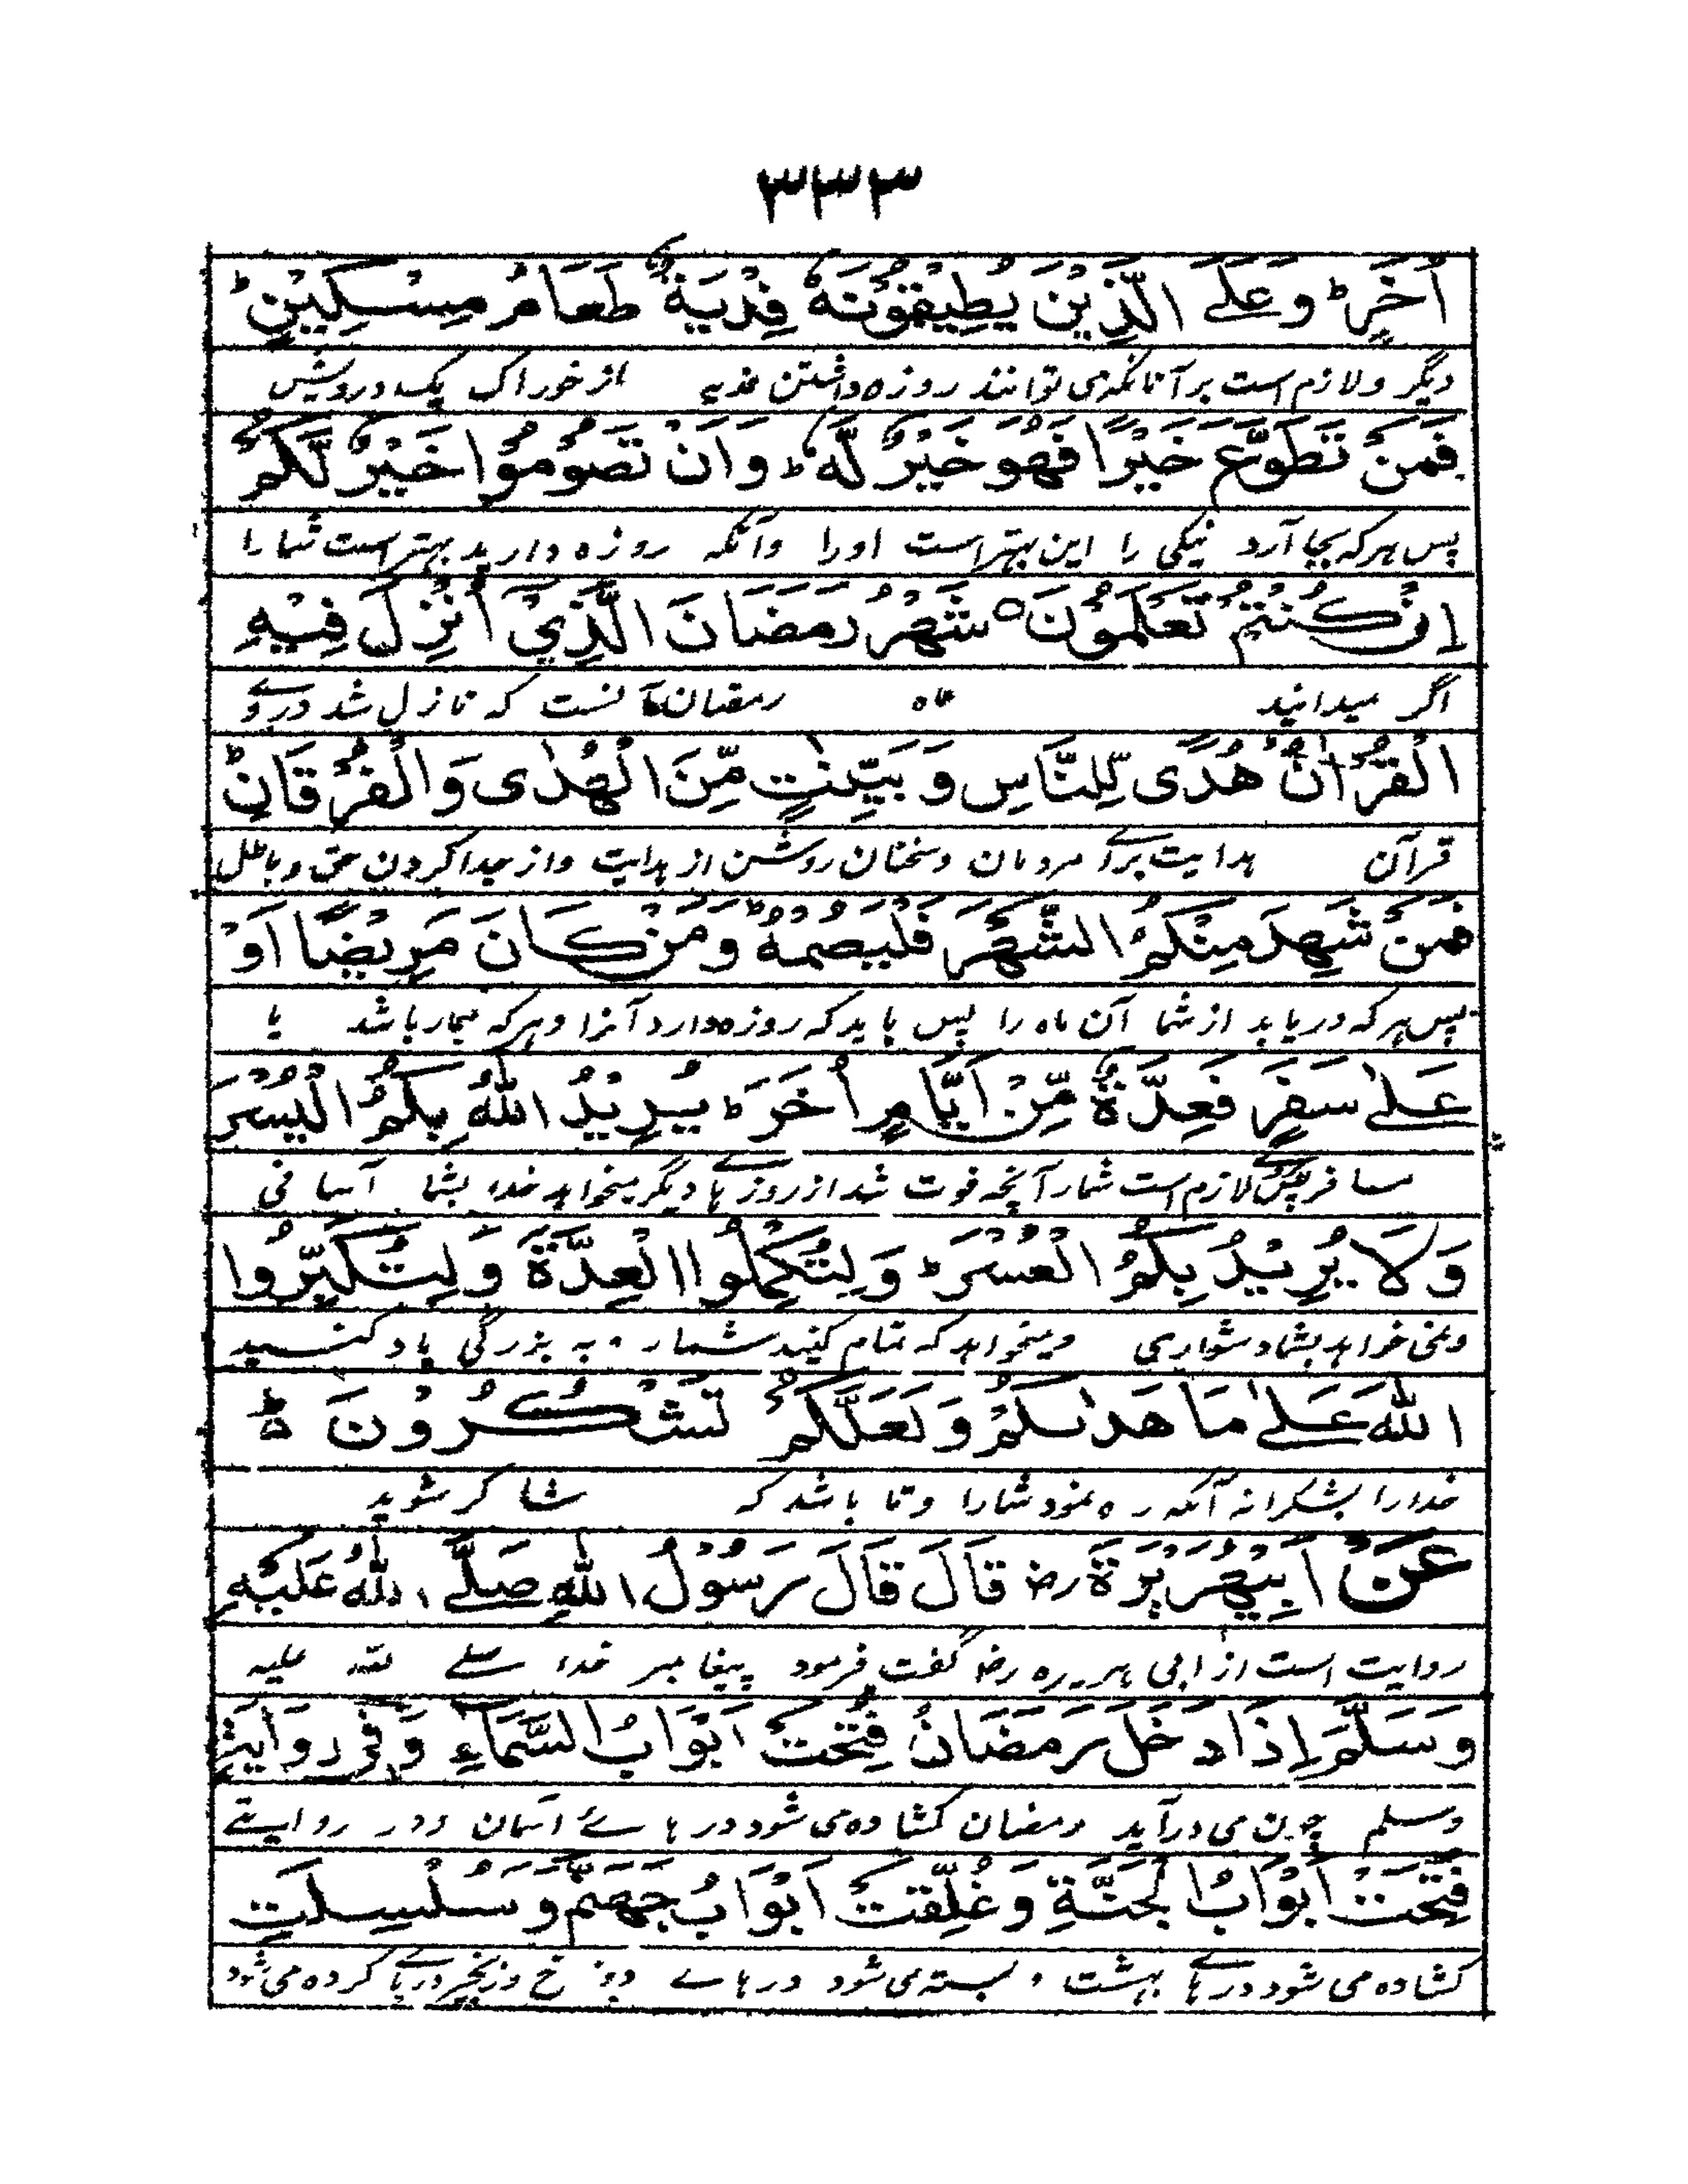 ٣٣٣
اُخَرَ ؕ وَعَلَی الَّذِیْنَ یُطِیْقُوْنَهٗ فِدْیَةٌ طَعَامُ مِسْكِیْنٍ ؕ
دیگر ولازم است برآنانکه می توانند روزه داشتن فدیه از خوراک یک درویش
فَمَنْ تَطَوَّعَ خَیْرًا فَهُوَ خَیْرٌ لَّهٗ ؕ وَاَنْ تَصُوْمُوْا خَیْرٌ لَّكُمْ
پس هر که بجا آرد نیکی را این بهتر است اورا وآنکه روزه دارید بهتر است شمارا
اِنْ كُنْتُمْ تَعْلَمُوْنَ ○ شَهْرُ رَمَضَانَ الَّذِیْۤ اُنْزِلَ فِیْهِ
اگر میدانید ماه رمضان آنست که نازل شد در وے
الْقُرْاٰنُ هُدًی لِّلنَّاسِ وَ بَیِّنٰتٍ مِّنَ الْهُدٰی وَالْفُرْقَانِ ؕ
قرآن هدایت برائے مردمان وسخنان روشن از هدایت واز جدا کردن حق وباطل
فَمَنْ شَهِدَ مِنْكُمُ الشَّهْرَ فَلْیَصُمْهُ ؕ وَمَنْ كَانَ مَرِیْضًا اَوْ
پس هر که دریابد از شما آن ماه را پس باید که روزه دارد آنرا وهر که بیمار باشد یا
عَلٰی سَفَرٍ فَعِدَّةٌ مِّنْ اَیَّامٍ اُخَرَ ؕ یُرِیْدُ اللّٰهُ بِكُمُ الْیُسْرَ
مسافر پس لازم است شمار آنچه فوت شد از روزہائے دیگر میخواهد خدا بشما آسانی
وَلَا یُرِیْدُ بِكُمُ الْعُسْرَ ؕ وَلِتُكْمِلُوا الْعِدَّةَ وَلِتُكَبِّرُوا
ونمی خواهد بشما دشواری ومیخواهد که تمام کنید شمار و به بزرگی یاد کنید
اللّٰهَ عَلٰی مَا هَدٰىكُمْ وَلَعَلَّكُمْ تَشْكُرُوْنَ ؕ
خدارا بشکرانه آنکه ره نمود شمارا وتا باشد که شاکر شوید
عَنْ اَبِیْهُرَیْرَةَ رض قَالَ قَالَ رَسُوْلُ اللّٰهِ صَلَّی اللّٰهُ عَلَیْهِ
روایت است از ابی هریره رض گفت فرمود پیغامبر خدا صلے الله علیه
وَسَلَّمَ اِذَا دَخَلَ رَمَضَانُ فُتِحَتْ اَبْوَابُ السَّمَآءِ وَفِیْ رِوَایَةٍ
وسلم چون می درآید رمضان کشاده می شود درہائے آسمان ودر روایتے
فُتِحَتْ اَبْوَابُ الْجَنَّةِ وَغُلِّقَتْ اَبْوَابُ جَهَنَّمَ وَسُلْسِلَتِ
کشاده می شود درہائے بہشت و بسته می شود درہائے دوزخ وزنجیر درپائے کرده می شود